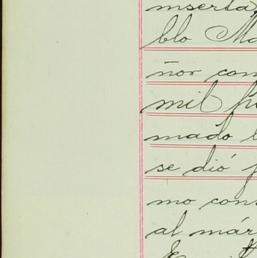 inserta
blo Ma
ñor com
mil
mado
se dió
mo con
al már